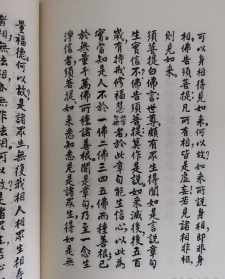 可以身相得見如來何以故如來所說身相即非身
相佛告須菩提凡所有相皆是虛妄若見諸相非相
則見如來
須菩提白佛言世尊頗有眾生得聞如是言說章句
生實信不佛告須菩提莫作是說如來滅後後五百
歲有持戒修福慧者於此章句能生信心以此為
實當知是人不於一佛二佛三四五佛而種善根已
於無量千萬佛所種諸善根聞是章句乃至一念生
淨信者須菩提如來悉知悉見是諸眾生得如是無
量福德何以故是諸眾生無復我相人相眾生相壽
者相無法相亦無非法相何以故